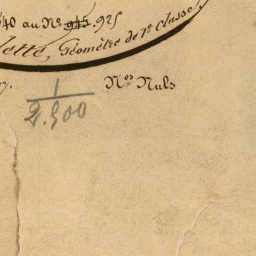 40 au N° 945. 925
lette, Géomètre de 1e Classe,
1 N.os Nuls
2.500